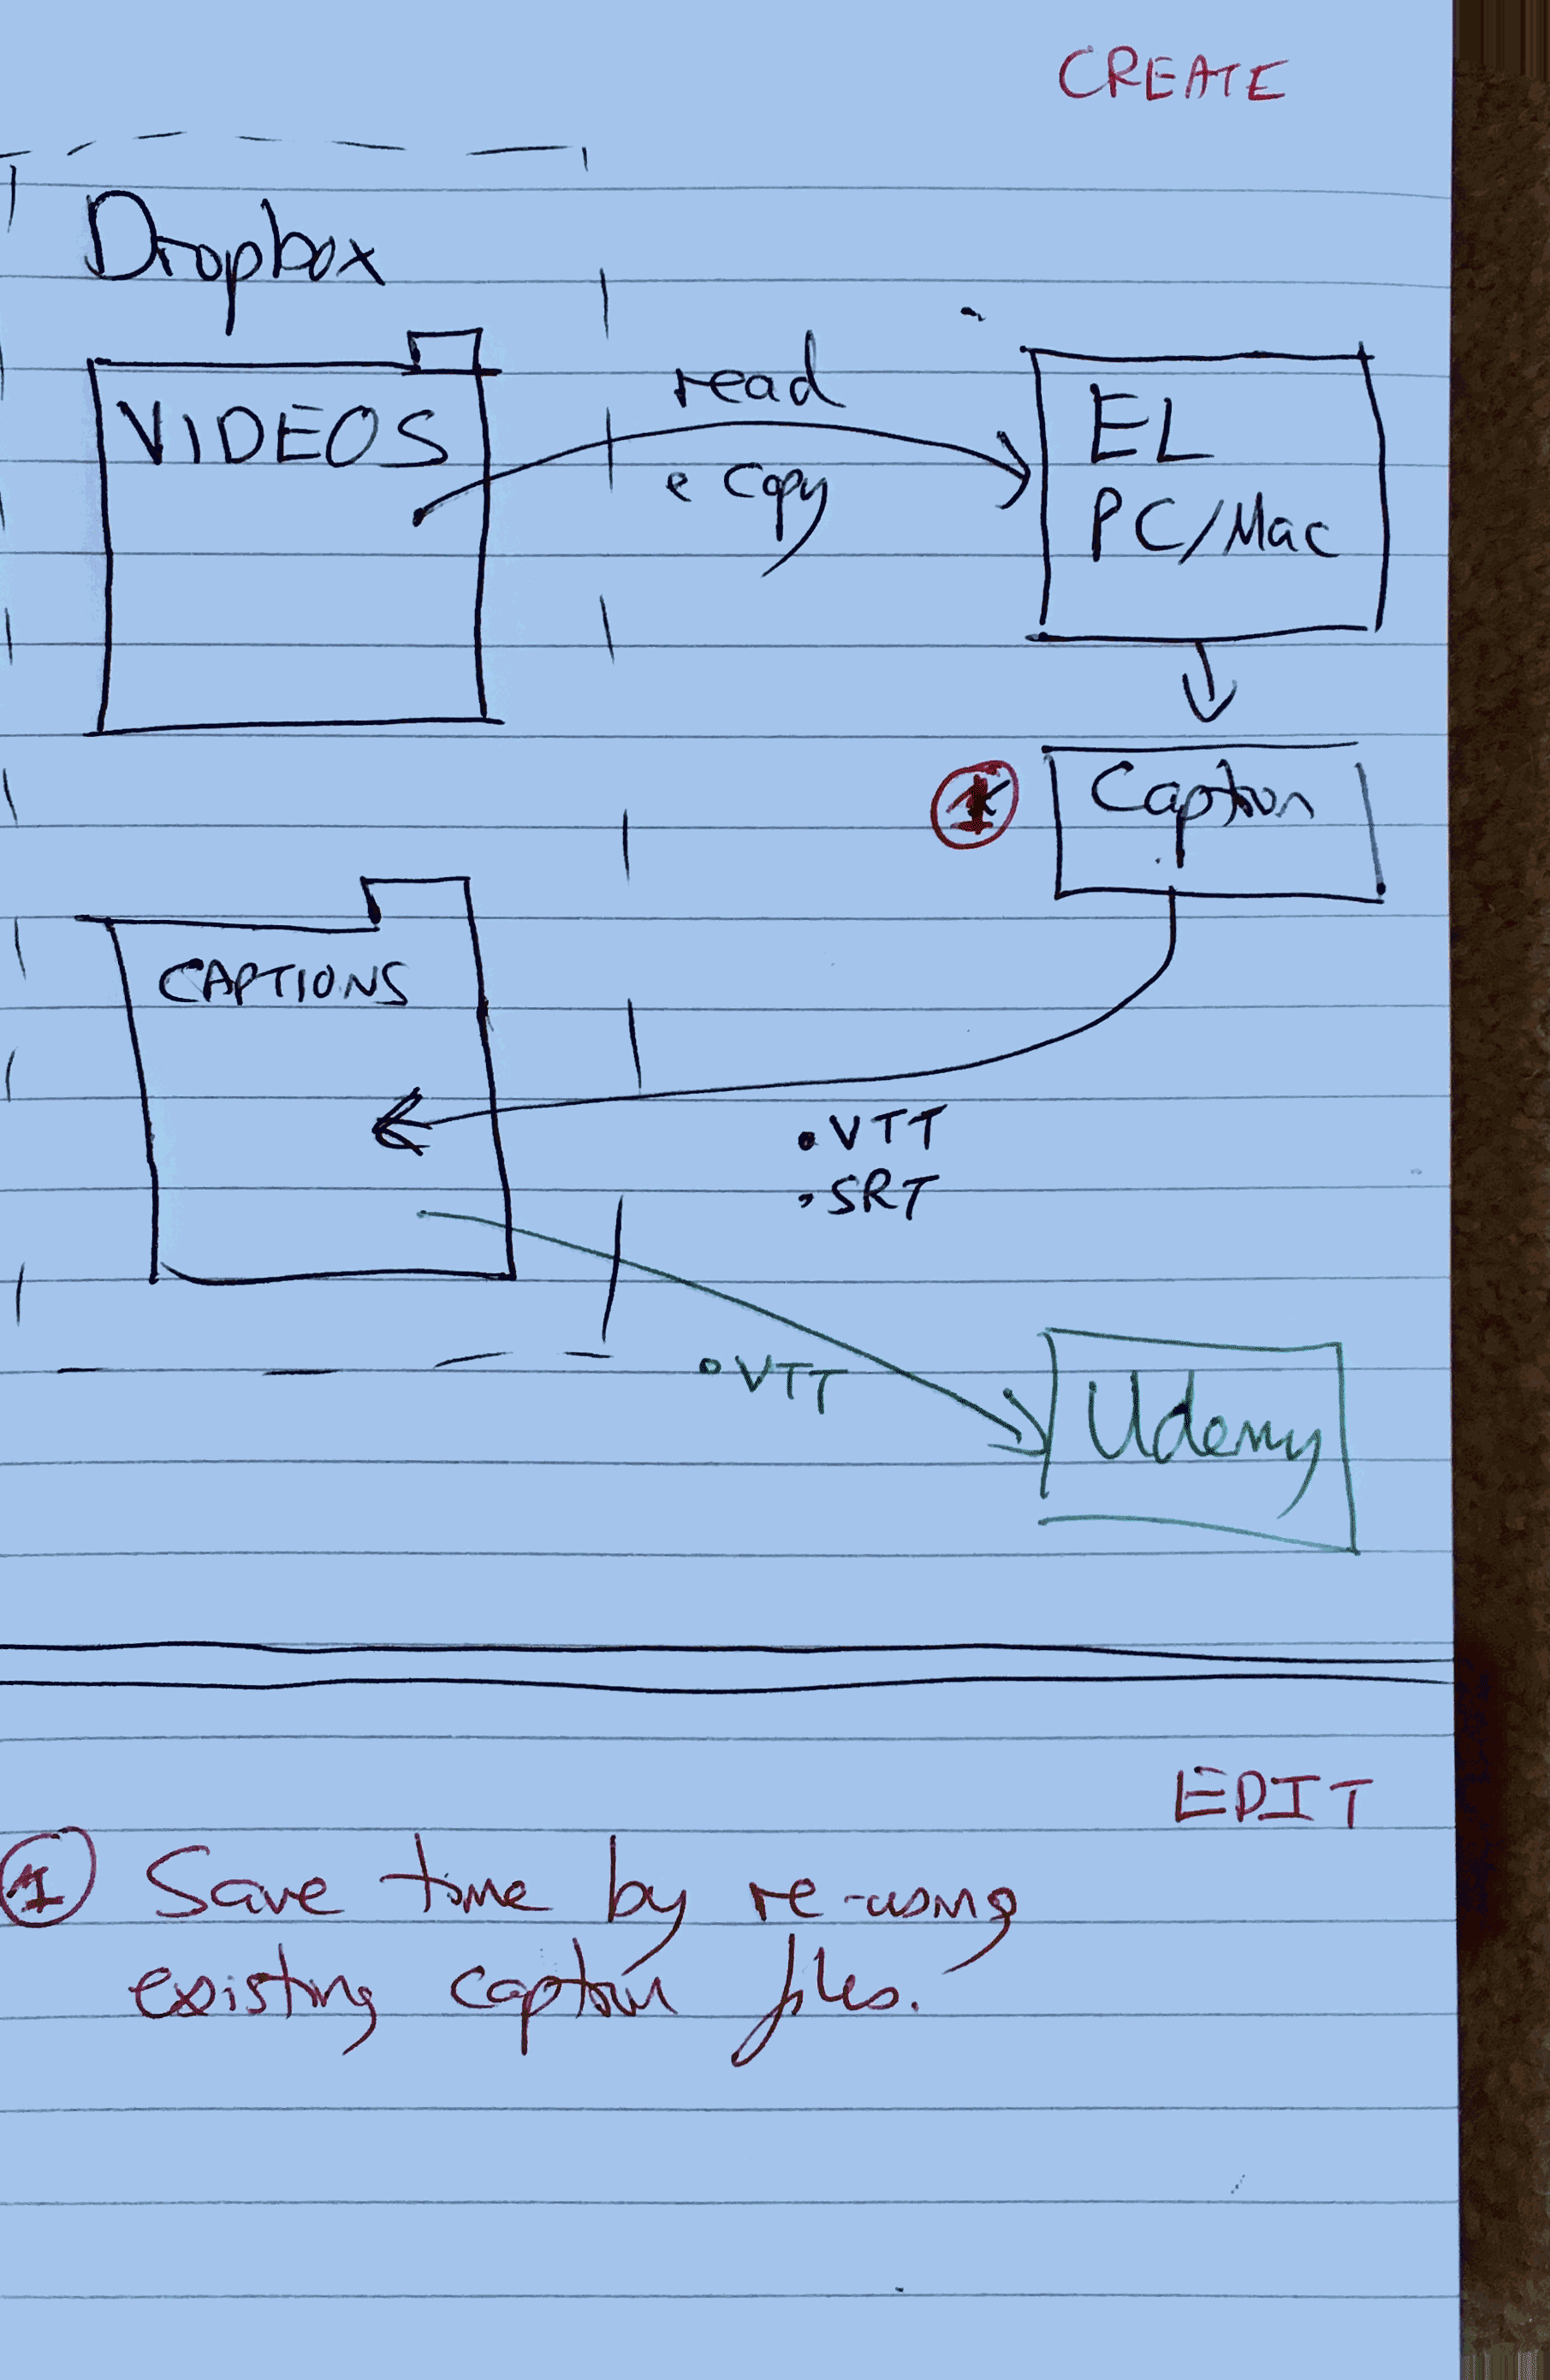 CREATE
Dropbox
VIDEOS
read
e copy
EL
PC/Mac
1
Caption
CAPTIONS
.VTT
.SRT
.VTT
Udemy
EDIT
1 Save time by re-using
existing caption files.